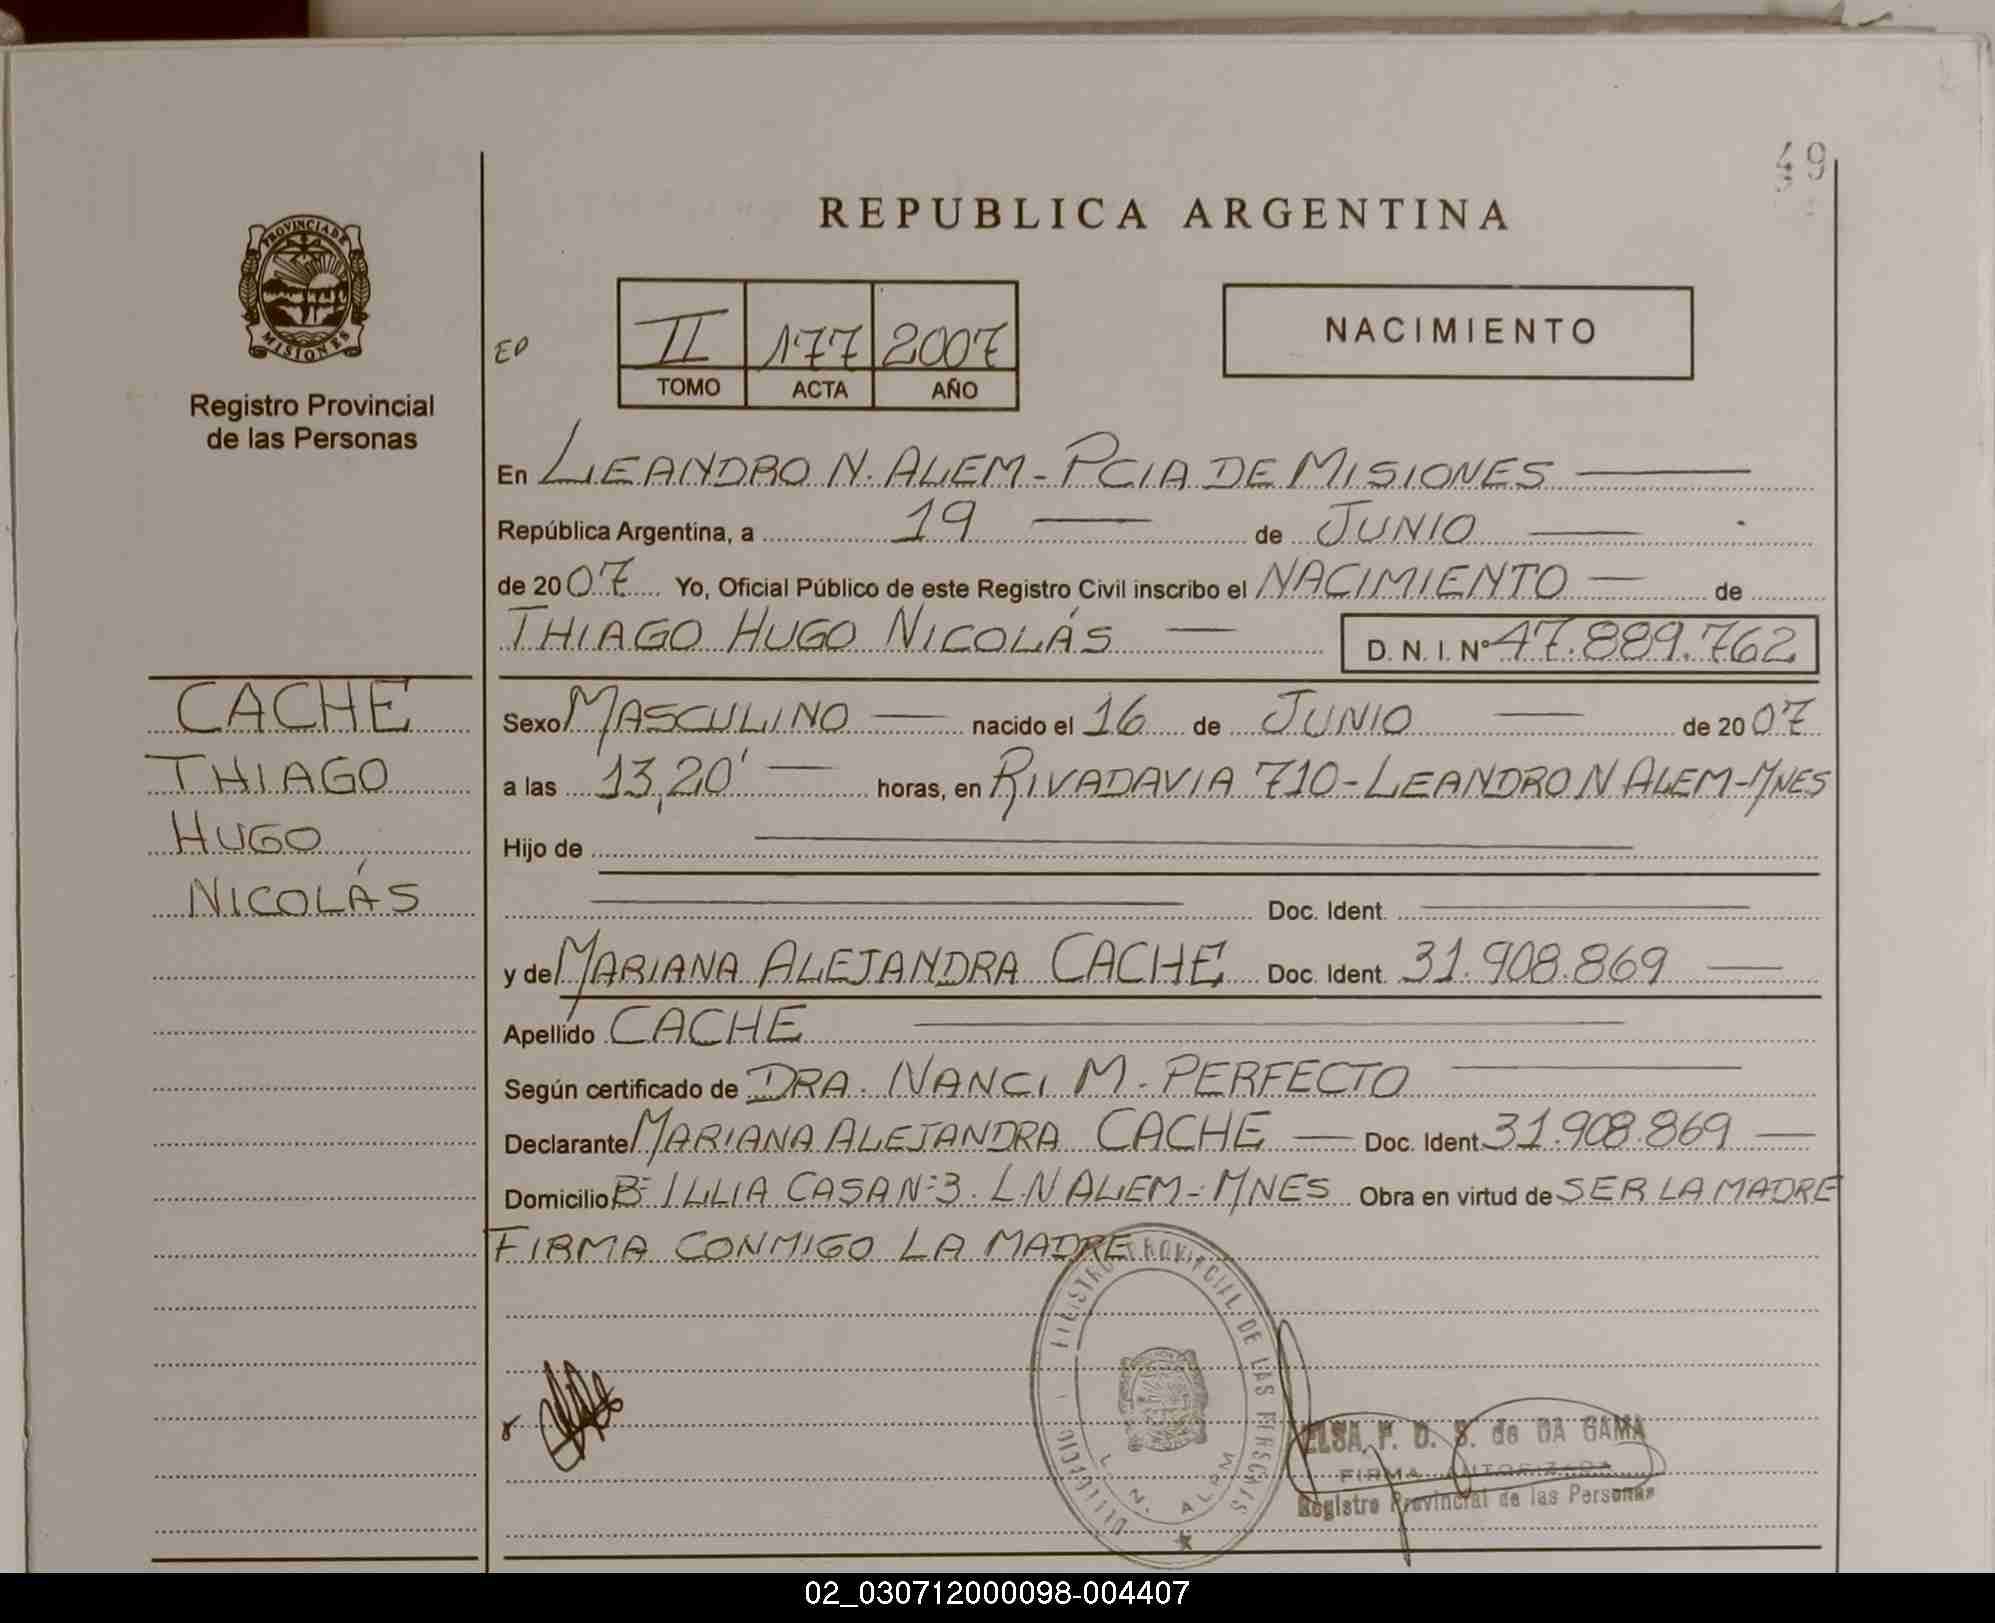 49
REPUBLICA ARGENTINA
PROVINCIA DE
MISIONES
Registro Provincial
de las Personas
EO
II 177 2007
TOMO ACTA AÑO
NACIMIENTO
En LEANDRO N. ALEM - PCIA DE MISIONES
República Argentina, a 19 de JUNIO
de 2007 Yo, Oficial Público de este Registro Civil inscribo el NACIMIENTO de
THIAGO HUGO NICOLÁS D. N. I. Nº 47.889.762
CACHE
THIAGO
HUGO
NICOLÁS
Sexo MASCULINO nacido el 16 de JUNIO de 2007
a las 13,20' horas, en RIVADAVIA 710 - LEANDRO N ALEM - MNES
Hijo de
Doc. Ident.
y de MARIANA ALEJANDRA CACHE Doc. Ident. 31.908.869
Apellido CACHE
Según certificado de DRA. NANCI M. PERFECTO
Declarante MARIANA ALEJANDRA CACHE Doc. Ident. 31.908.869
Domicilio Bº ILLIA CASA Nº3. L.N ALEM - MNES Obra en virtud de SER LA MADRE
FIRMA CONMIGO LA MADRE
REGISTRO PROVINCIAL DE LAS PERSONAS
L. N. ALEM
ELSA F. D. S. de DA GAMA
FIRMA AUTORIZADA
Registro Provincial de las Personas
02_030712000098-004407